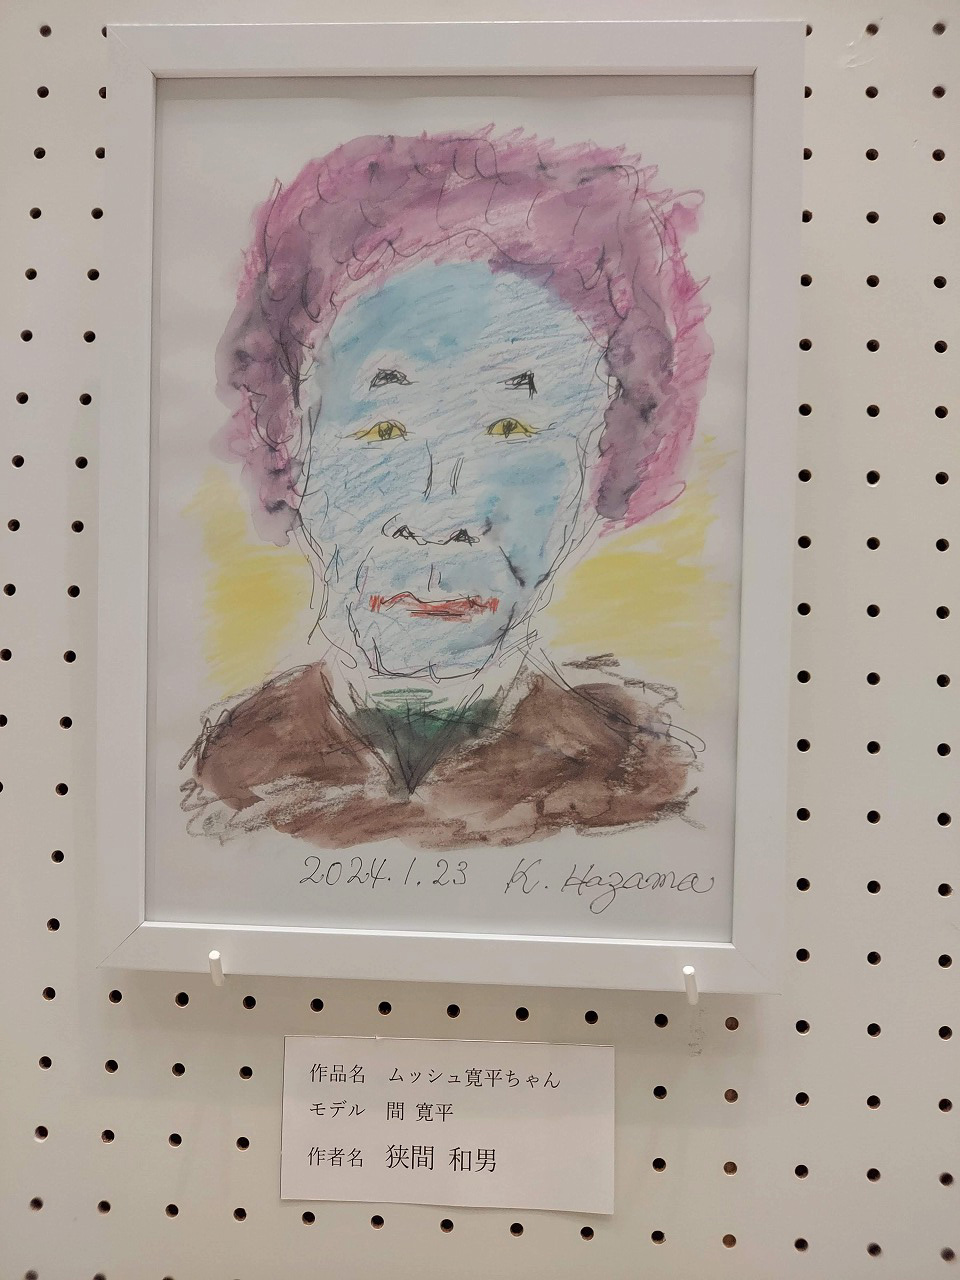 2024.1.23 K. Hazama
作品名 ムッシュ寛平ちゃん
モデル 間 寛平
作者名 狭間 和男